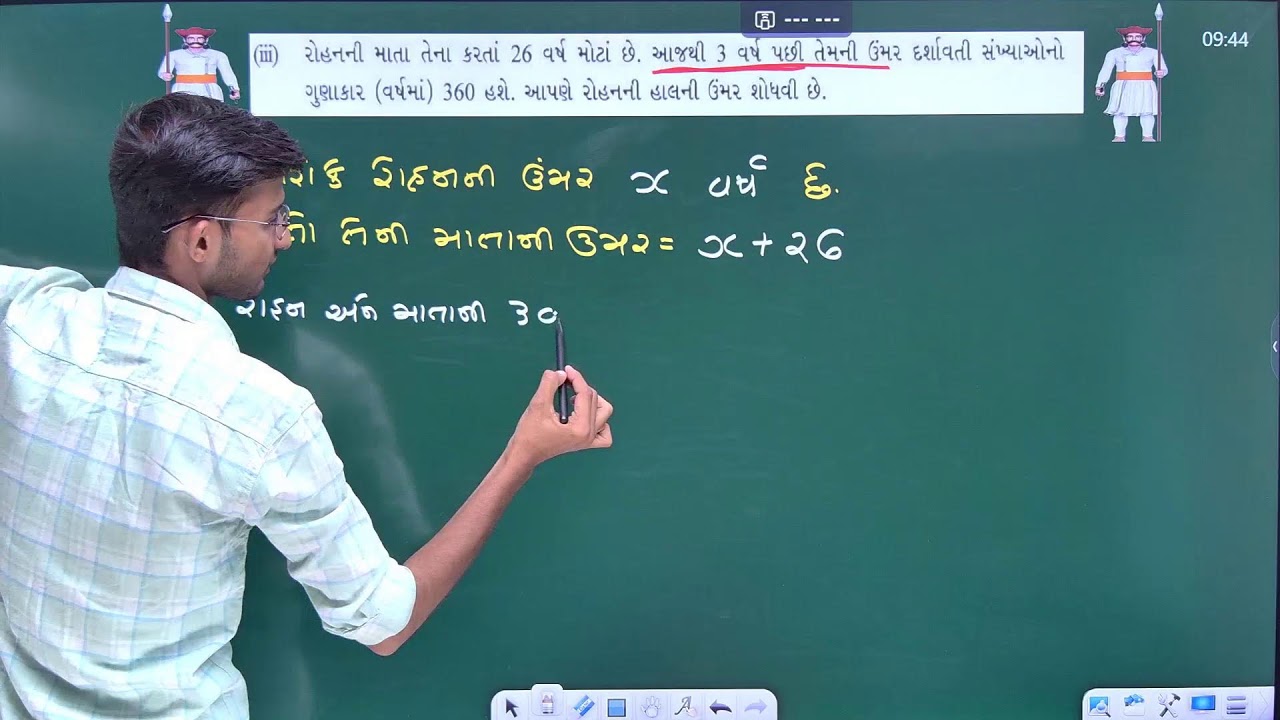 --- ---
09:44
(iii) રોહનની માતા તેના કરતાં 26 વર્ષ મોટાં છે. આજથી 3 વર્ષ પછી તેમની ઉંમર દર્શાવતી સંખ્યાઓનો
ગુણાકાર (વર્ષમાં) 360 હશે. આપણે રોહનની હાલની ઉંમર શોધવી છે.
રોહનની ઉંમર x વર્ષ છે.
તો તેની માતાની ઉંમર = x + 26
રોહન અને માતાની 3 વ